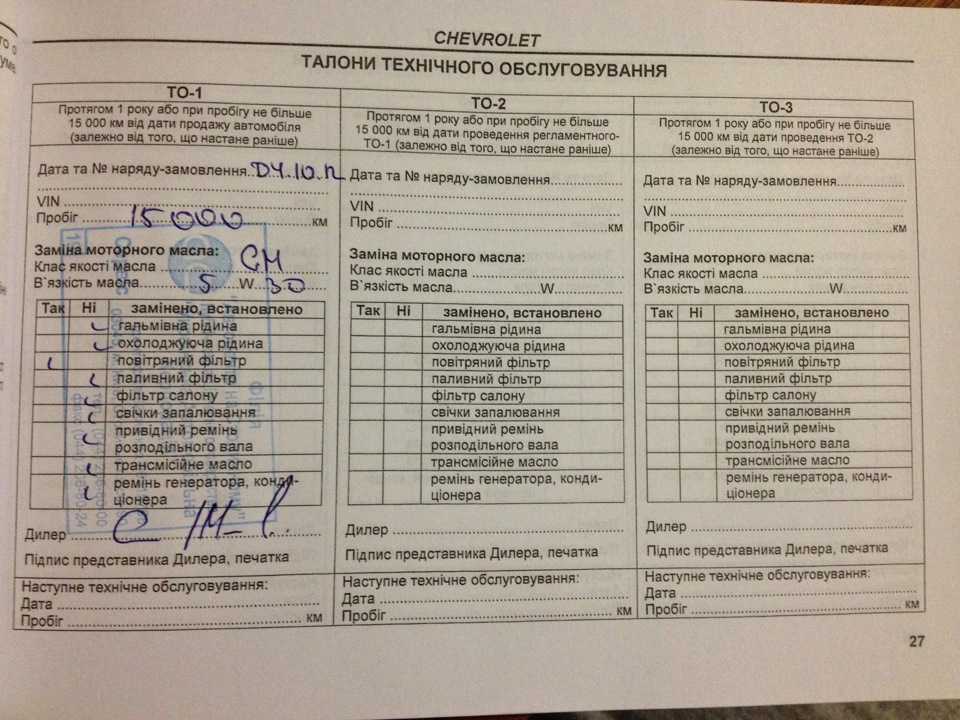 CHEVROLET
ТАЛОНИ ТЕХНІЧНОГО ОБСЛУГОВУВАННЯ
ТО-1
Протягом 1 року або при пробігу не більше
15 000 км від дати продажу автомобіля
(залежно від того, що настане раніше)
Дата та № наряду-замовлення. 04.10.12
VIN
Пробіг 15000 км
Заміна моторного масла:
Клас якості масла CM
В`язкість масла 5 W 30
Так Ні замінено, встановлено
гальмівна рідина
охолоджуюча рідина
повітряний фільтр
паливний фільтр
фільтр салону
свічки запалювання
привідний ремінь
розподільного вала
трансмісійне масло
ремінь генератора, конди-
ціонера
Дилер
Підпис представника Дилера, печатка
Наступне технічне обслуговування:
Дата
Пробіг км
ТО-2
Протягом 1 року або при пробігу не більше
15 000 км від дати проведення регламентного-
ТО-1 (залежно від того, що настане раніше)
Дата та № наряду-замовлення
VIN
Пробіг км
Заміна моторного масла:
Клас якості масла
В`язкість масла W
Так Ні замінено, встановлено
гальмівна рідина
охолоджуюча рідина
повітряний фільтр
паливний фільтр
фільтр салону
свічки запалювання
привідний ремінь
розподільного вала
трансмісійне масло
ремінь генератора, конди-
ціонера
Дилер
Підпис представника Дилера, печатка
Наступне технічне обслуговування:
Дата
Пробіг км
ТО-3
Протягом 1 року або при пробігу не більше
15 000 км від дати проведення ТО-2
(залежно від того, що настане раніше)
Дата та № наряду-замовлення
VIN
Пробіг км
Заміна моторного масла:
Клас якості масла
В`язкість масла W
Так Ні замінено, встановлено
гальмівна рідина
охолоджуюча рідина
повітряний фільтр
паливний фільтр
фільтр салону
свічки запалювання
привідний ремінь
розподільного вала
трансмісійне масло
ремінь генератора, конди-
ціонера
Дилер
Підпис представника Дилера, печатка
Наступне технічне обслуговування:
Дата
Пробіг км
27